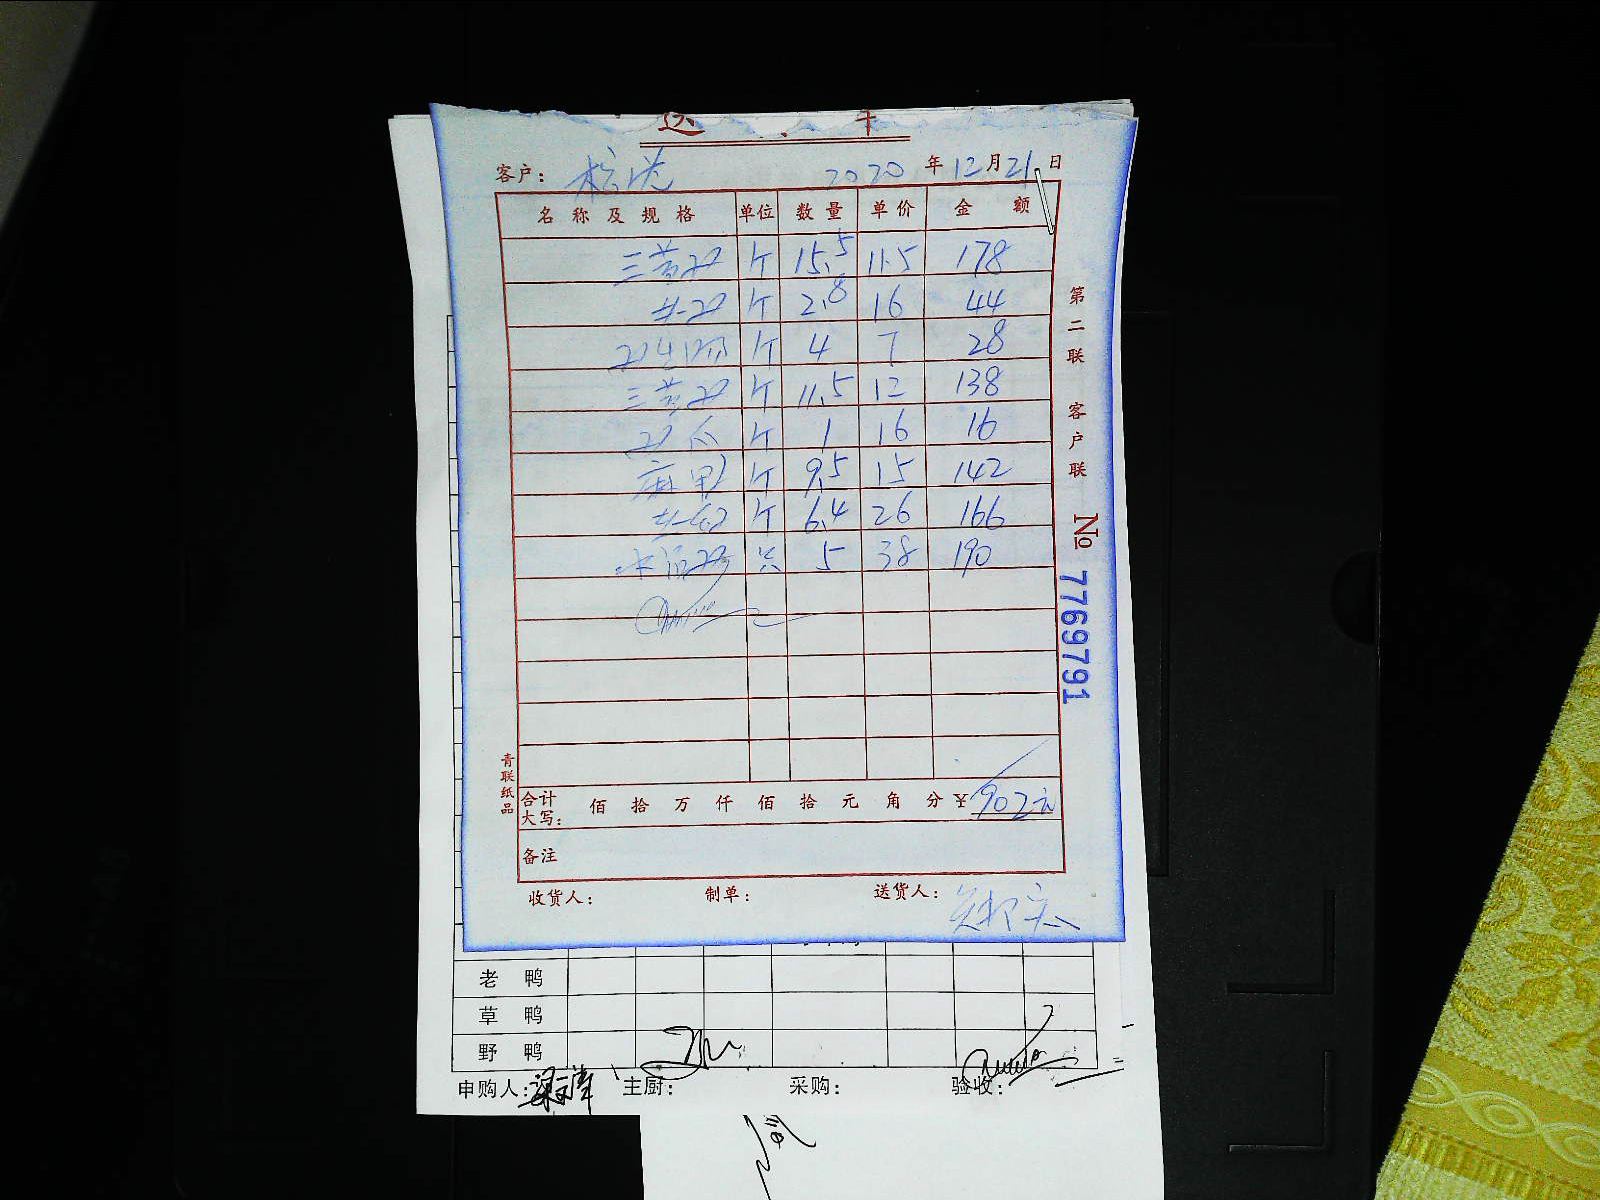 送 单
客户： 2020 年 12 月 21 日
名称及规格 单位 数量 单价 金额
三黄 个 15.5 11.5 178
个 2.8 16 44
个 4 7 28
三黄 个 11.5 12 138
个 1 16 16
个 9.5 15 142
个 6.4 26 166
只 5 38 190
合计大写： 佰 拾 万 仟 佰 拾 元 角 分 ¥ 902元
备注
收货人： 制单： 送货人：
第二联 客户联
№ 7769791
青联纸品
老 鸭
草 鸭
野 鸭
申购人： 主厨： 采购： 验收：